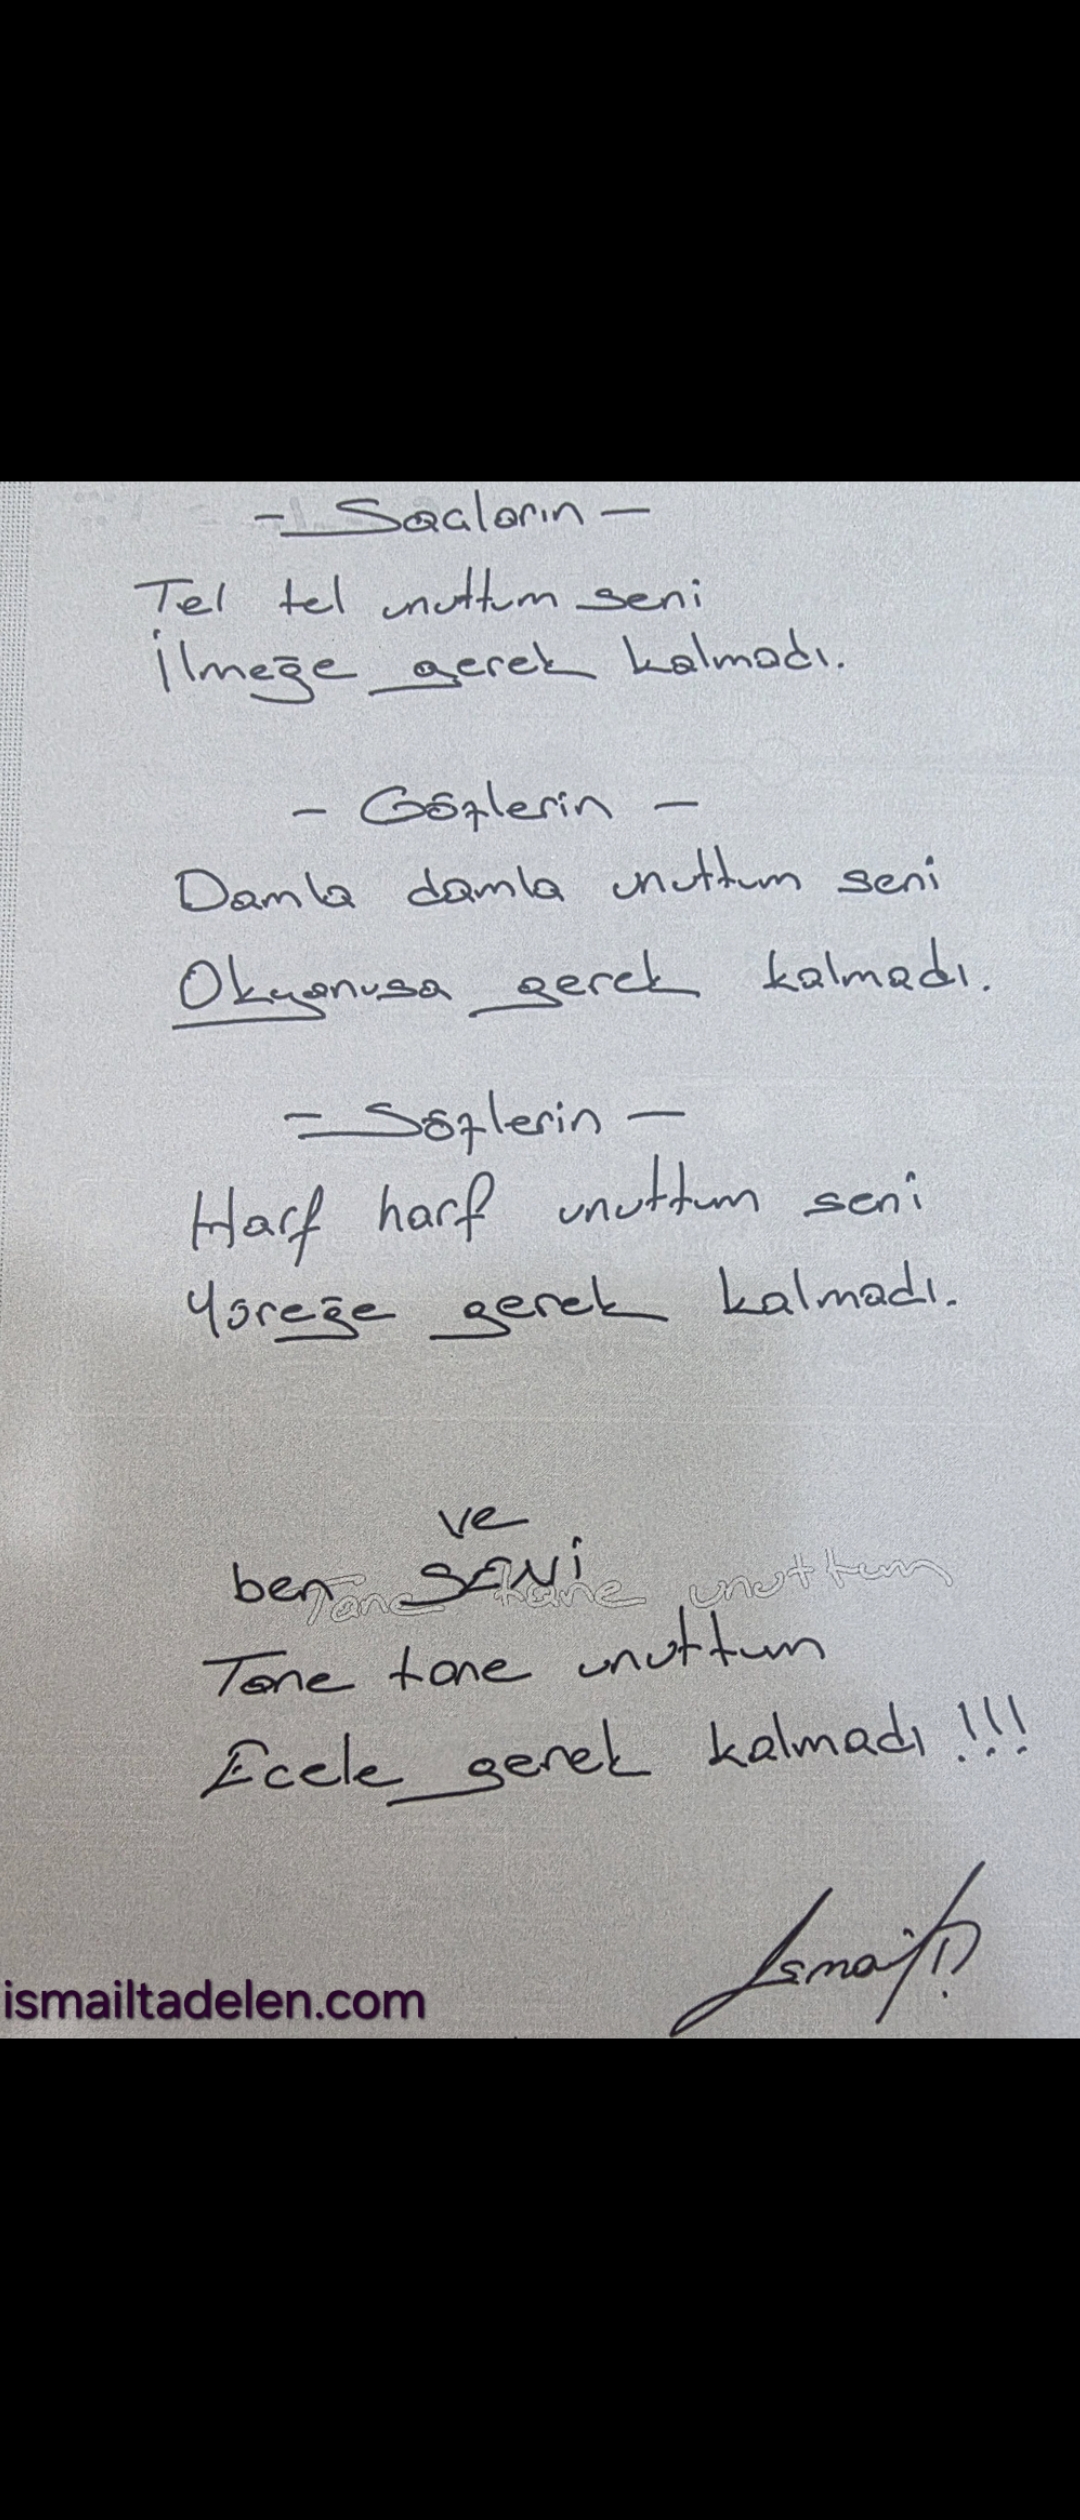 - Saçların -
Tel tel unuttum seni
İlmeğe gerek kalmadı.
- Gözlerin -
Damla damla unuttum seni
Okyanusa gerek kalmadı.
- Sözlerin -
Harf harf unuttum seni
Yüreğe gerek kalmadı.
ve
ben SENİ
Tane tane unuttum
Tane tane unuttum
Ecele gerek kalmadı !!!
İsmail
ismailtadelen.com